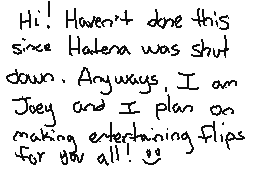 Hi! Haven't done this
since Hatena was shut
down. Anyways, I am
Joey and I plan on
making entertaining flips
for you all! :)